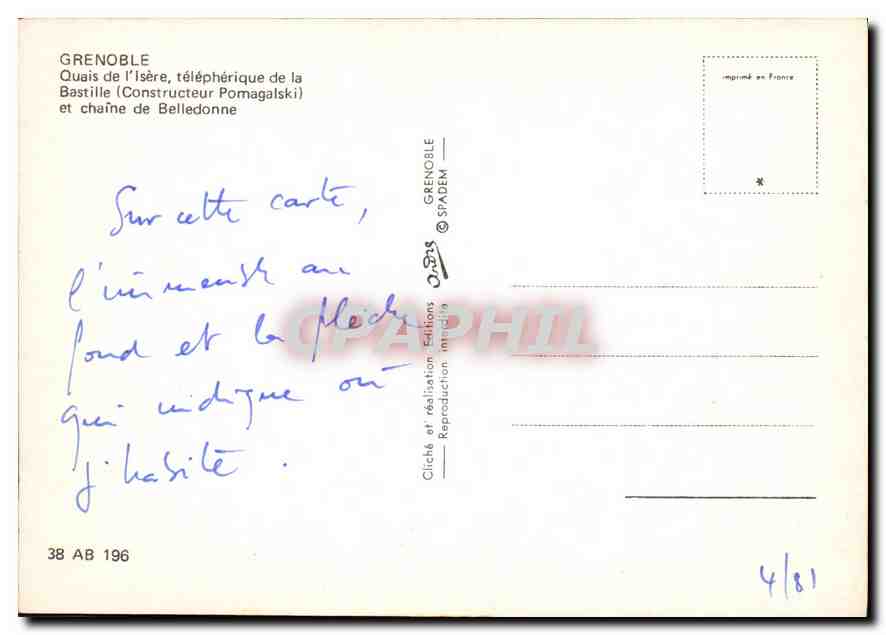 GRENOBLE
Quais de l'Isère, téléphérique de la
Bastille (Constructeur Pomagalski)
et chaîne de Belledonne
imprimé en France
*
Sur cette carte,
l'immeuble au
fond et la flèche
qui indique où
j'habite.
Cliché et réalisation Editions andré GRENOBLE
Reproduction interdite © SPADEM
CPAPHIL
38 AB 196
4/81